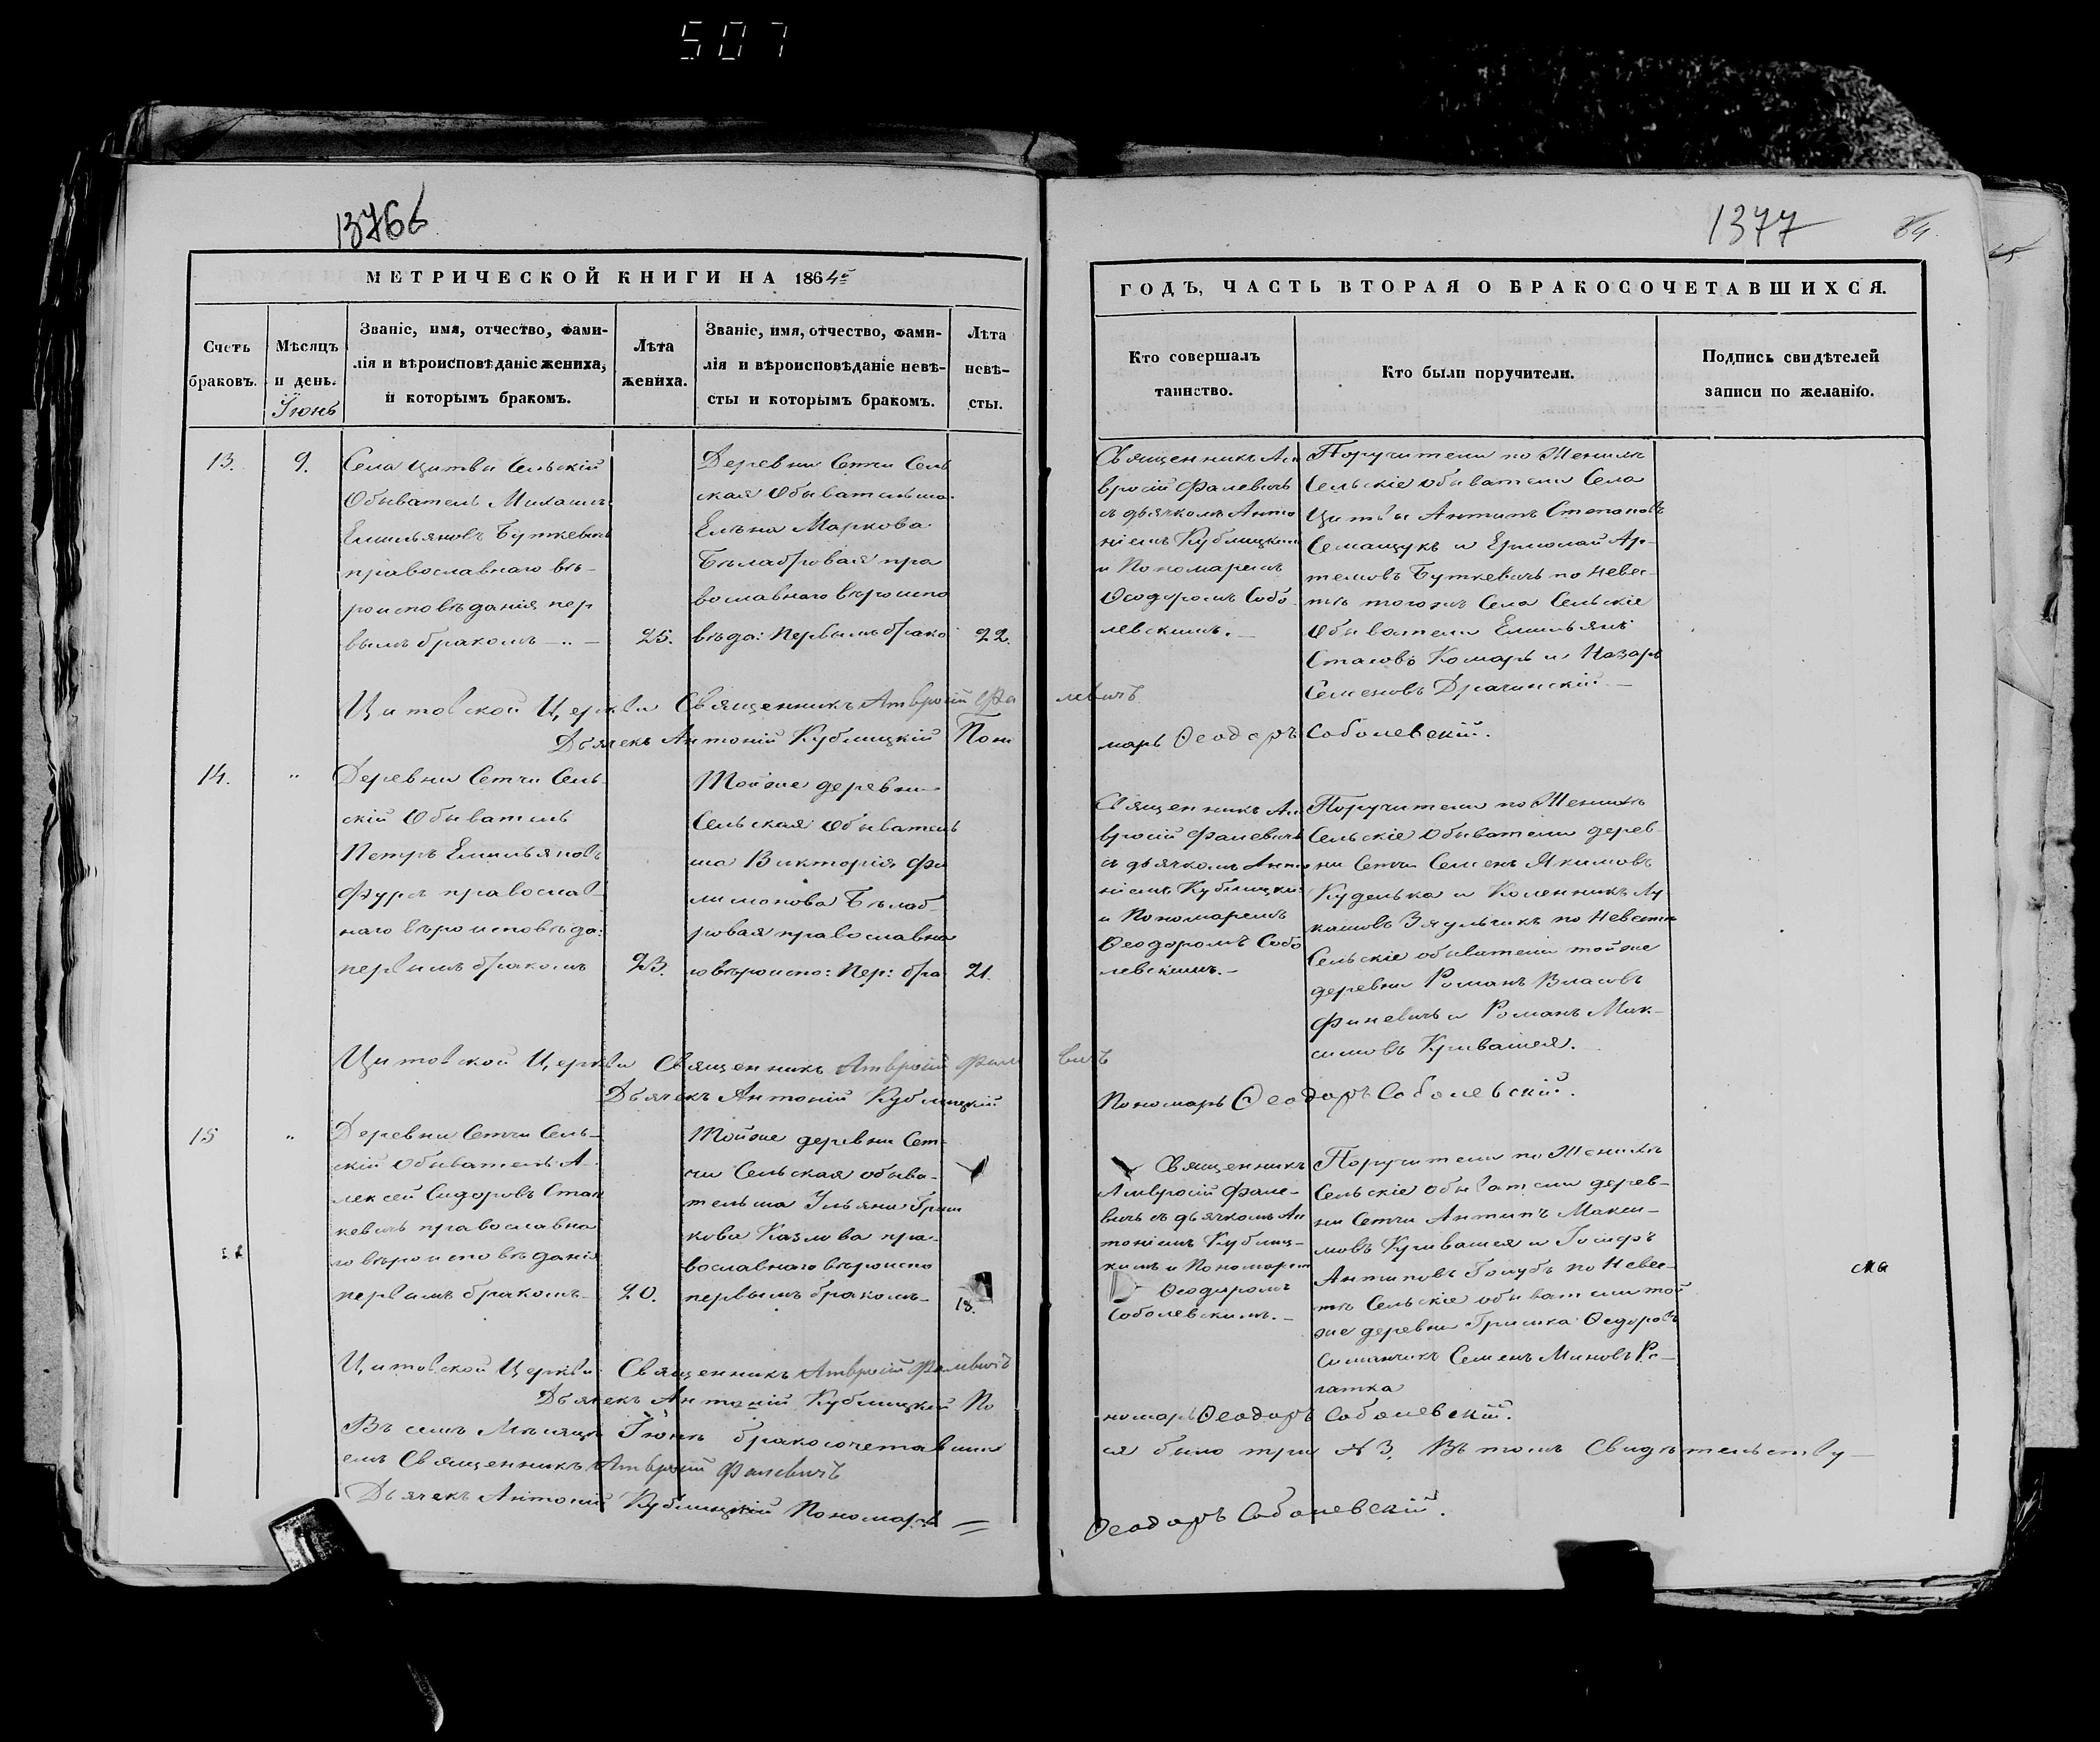 507
1376
1377
84.
МЕТРИЧЕСКОЙ КНИГИ НА 1864й
ГОДЪ, ЧАСТЬ ВТОРАЯ О БРАКОСОЧЕТАВШИХСЯ.
Счетъ
браковъ.
Мѣсяцъ
и день.
Іюнь
Званіе, имя, отчество, фами-
лія и вѣроисповѣданіе жениха,
и которымъ бракомъ.
Лѣта
жениха.
Званіе, имя, отчество, фами-
лія и вѣроисповѣданіе невѣ-
сты и которымъ бракомъ.
Лѣта
невѣ-
сты.
Кто совершалъ
таинство.
Кто были поручители.
Подпись свидѣтелей
записи по желанію.
13.
9.
Села Цитвы Сельскій
Обыватель Михаилъ
Емильяновъ Буткевичь
православнаго вѣ-
роисповѣданія пер
вымъ бракомъ
25.
Деревни Сетчи Сель
ская Обывательша
Елѣна Маркова
Бѣлабровая пра
вославнаго вѣроиспо
вѣда: Первымъ брако
22.
Священникъ Ам
вросій Фалевичь
съ дьячкомъ Анто
ніемъ Кублицкимъ
и Пономаремъ
Ѳеодоромъ Собо
левскимъ.
Поручители по Женихѣ
Сельскіе обыватели Села
Цитвы Антипъ Степановъ
Семащукъ и Ермолай Ар-
темовъ Буткевичь по Невес-
тѣ тогожъ Села Сельскіе
Обыватели Емильянъ
Стасовъ Комаръ и Назаръ
Семеновъ Драчинскій
Цитовской Церкви Священникъ Амвросій Фалевичъ
Дьячекъ Антоній Кублицкій Пономарь Ѳеодоръ Соболевскій.
14.
"
Деревни Сетчи Сель-
скій Обыватель
Петръ Емильяновъ
Фурсъ православ-
наго вѣроисповѣда:
первымъ бракомъ
23.
Тойже деревни
Сельская Обыватель
ша Викторія Фи
лимонова Бѣлаб-
ровая православна
го вѣроиспо: Пер: бра
21.
Священникъ Ам
вросій Фалевичь
съ дьячкомъ Анто
ніемъ Кублицки
и Пономаремъ
Ѳеодоромъ Собо
левскимъ.
Поручители по Женихѣ
Сельскіе Обыватели дерев
ни Сетчи Семенъ Якимовъ
Куделька и Коленникъ Лу
кашовъ Зяульчикъ по Невестѣ
Сельскіе обыватели тойже
деревни Романъ Власовъ
Финевичь и Романъ Мак-
симовъ Кривашея.
Цитовской Церкви Священникъ Амвросій Фалевичъ
Дьячекъ Антоній Кублицкій Пономарь Ѳеодоръ Соболевскій.
15
"
Деревни Сетчи Сель-
скій Обыватель А-
лексей Сидоровъ Стан
кевичь православна
го вѣроисповѣданія
первымъ бракомъ
20.
Тойже деревни Сет-
чи Сельская обыва-
тельша Ульяна Гриш
кова Казлова пра-
вославнаго вѣроиспо
первымъ бракомъ
18.
Священникъ
Амвросій Фале-
вичь съ дьячкомъ Ан
тоніемъ Кублиц-
кимъ и Пономарем
Ѳеодоромъ
Соболевскимъ.
Поручители по Женихѣ
Сельскіе обыватели дерев-
ни Сетчи Антипъ Макси-
мовъ Кривашея и Іосифъ
Антиповъ Голубъ по Невес-
тѣ Сельскіе обыватели той
же деревни Гришка Ѳедоровъ
Симанчикъ Семенъ Миновъ Ро-
гатка
Цитовской Церкви Священникъ Амвросій Фалевичъ
Дьячекъ Антоній Кублицкій Пономарь Ѳеодоръ Соболевскій.
Въ семъ Мѣсяцѣ Іюнѣ бракосочетавшихся было три № 3, Въ томъ Свидѣтельству-
емъ Священникъ Амвросій Фалевичъ
Дьячекъ Антоній Кублицкій Пономарь = Ѳеодоръ Соболевскій.